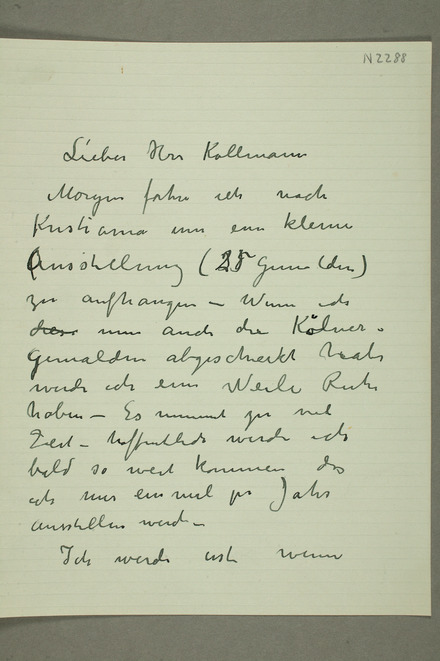 N 2288
Lieber Herr Kollmann
Morgen fahre ich nach
Kristiania um eine kleine
Ausstellung (25 Gemälden)
zu aufhangen – Wenn ich
diese nun auch die Kölner-
Gemalden abgeschickt habe
werde ich eine Weile Ruhe
haben – Es nimmt zu viel
Zeit – hoffentlich werde ich
bald so weit kommen das
ich nur einmal pr Jahr
ausstellen werde –
Ich werde erst wenn